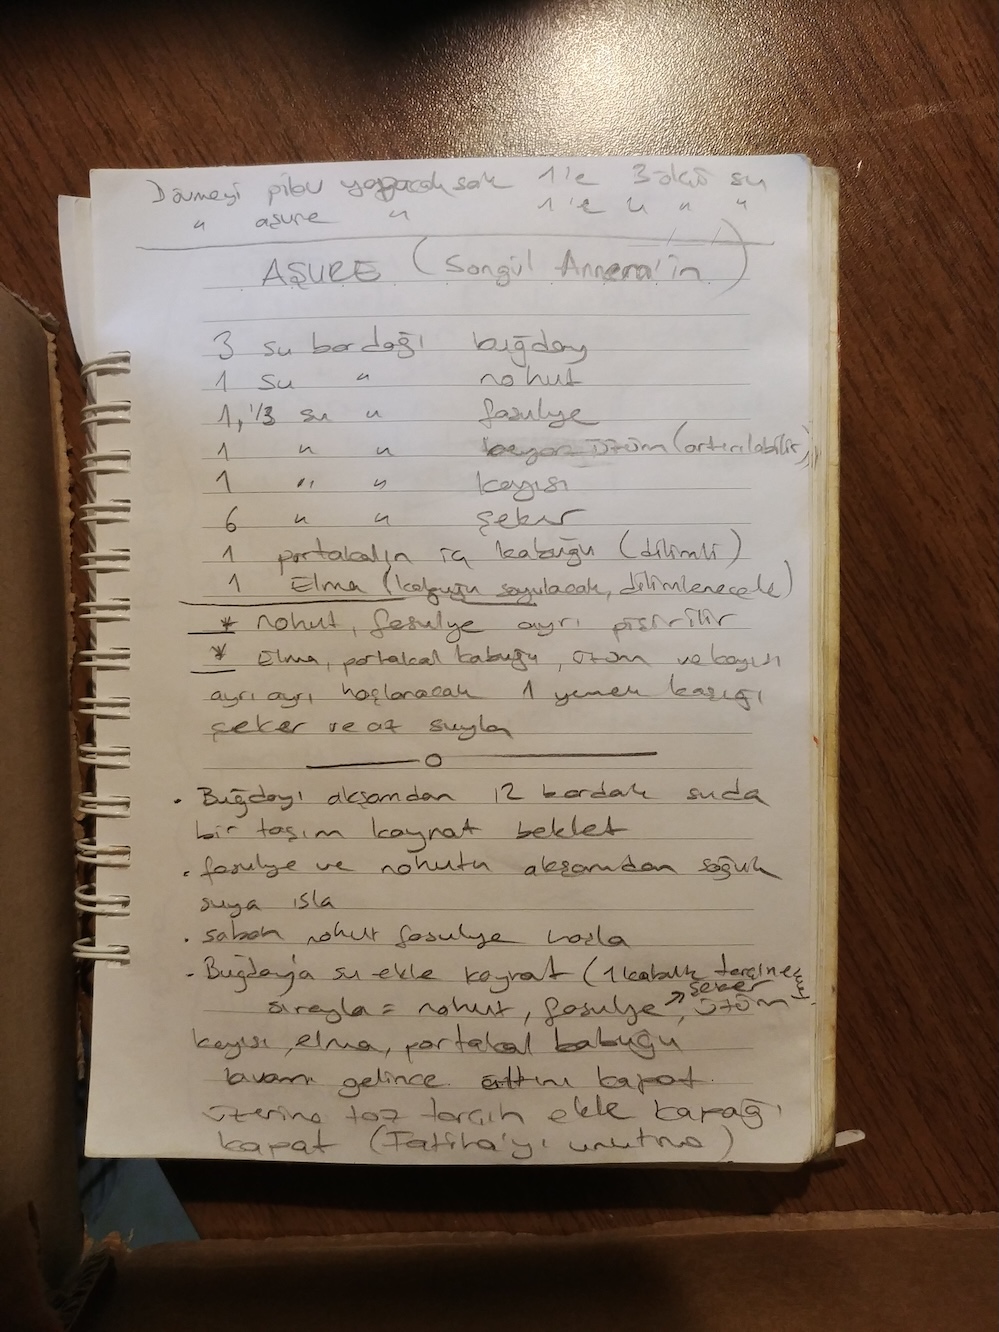 Dövmeyi pilav yapacaksak 1'e 3 ölçü su
" aşure " 1'e " "
AŞURE (Songül Annem'in)
3 su bardağı buğday
1 su " nohut
1,1/3 su " fasulye
1 " " beyaz üzüm (artırılabilir)
1 " " kayısı
6 " " şeker
1 portakalın iç kabuğu (dilimli)
1 Elma (kabuğu soyulacak, dilimlenecek)
* nohut, fasulye ayrı pişirilir
* Elma, portakal kabuğu, üzüm ve kayısı
ayrı ayrı haşlanacak 1 yemek kaşığı
şeker ve az suyla
. Buğdayı akşamdan 12 bardak suda
bir taşım kaynat beklet
. fasulye ve nohutu akşamdan soğuk
suya ısla
. sabah nohut fasulye haşla
. Buğday'a su ekle kaynat (1 kabuk tarçın
şeker
sırayla = nohut, fasulye, üzüm
kayısı, elma, portakal kabuğu
kıvamı gelince altını kapat.
üzerine toz tarçın ekle kapağı
kapat (Fatiha'yı unutma)